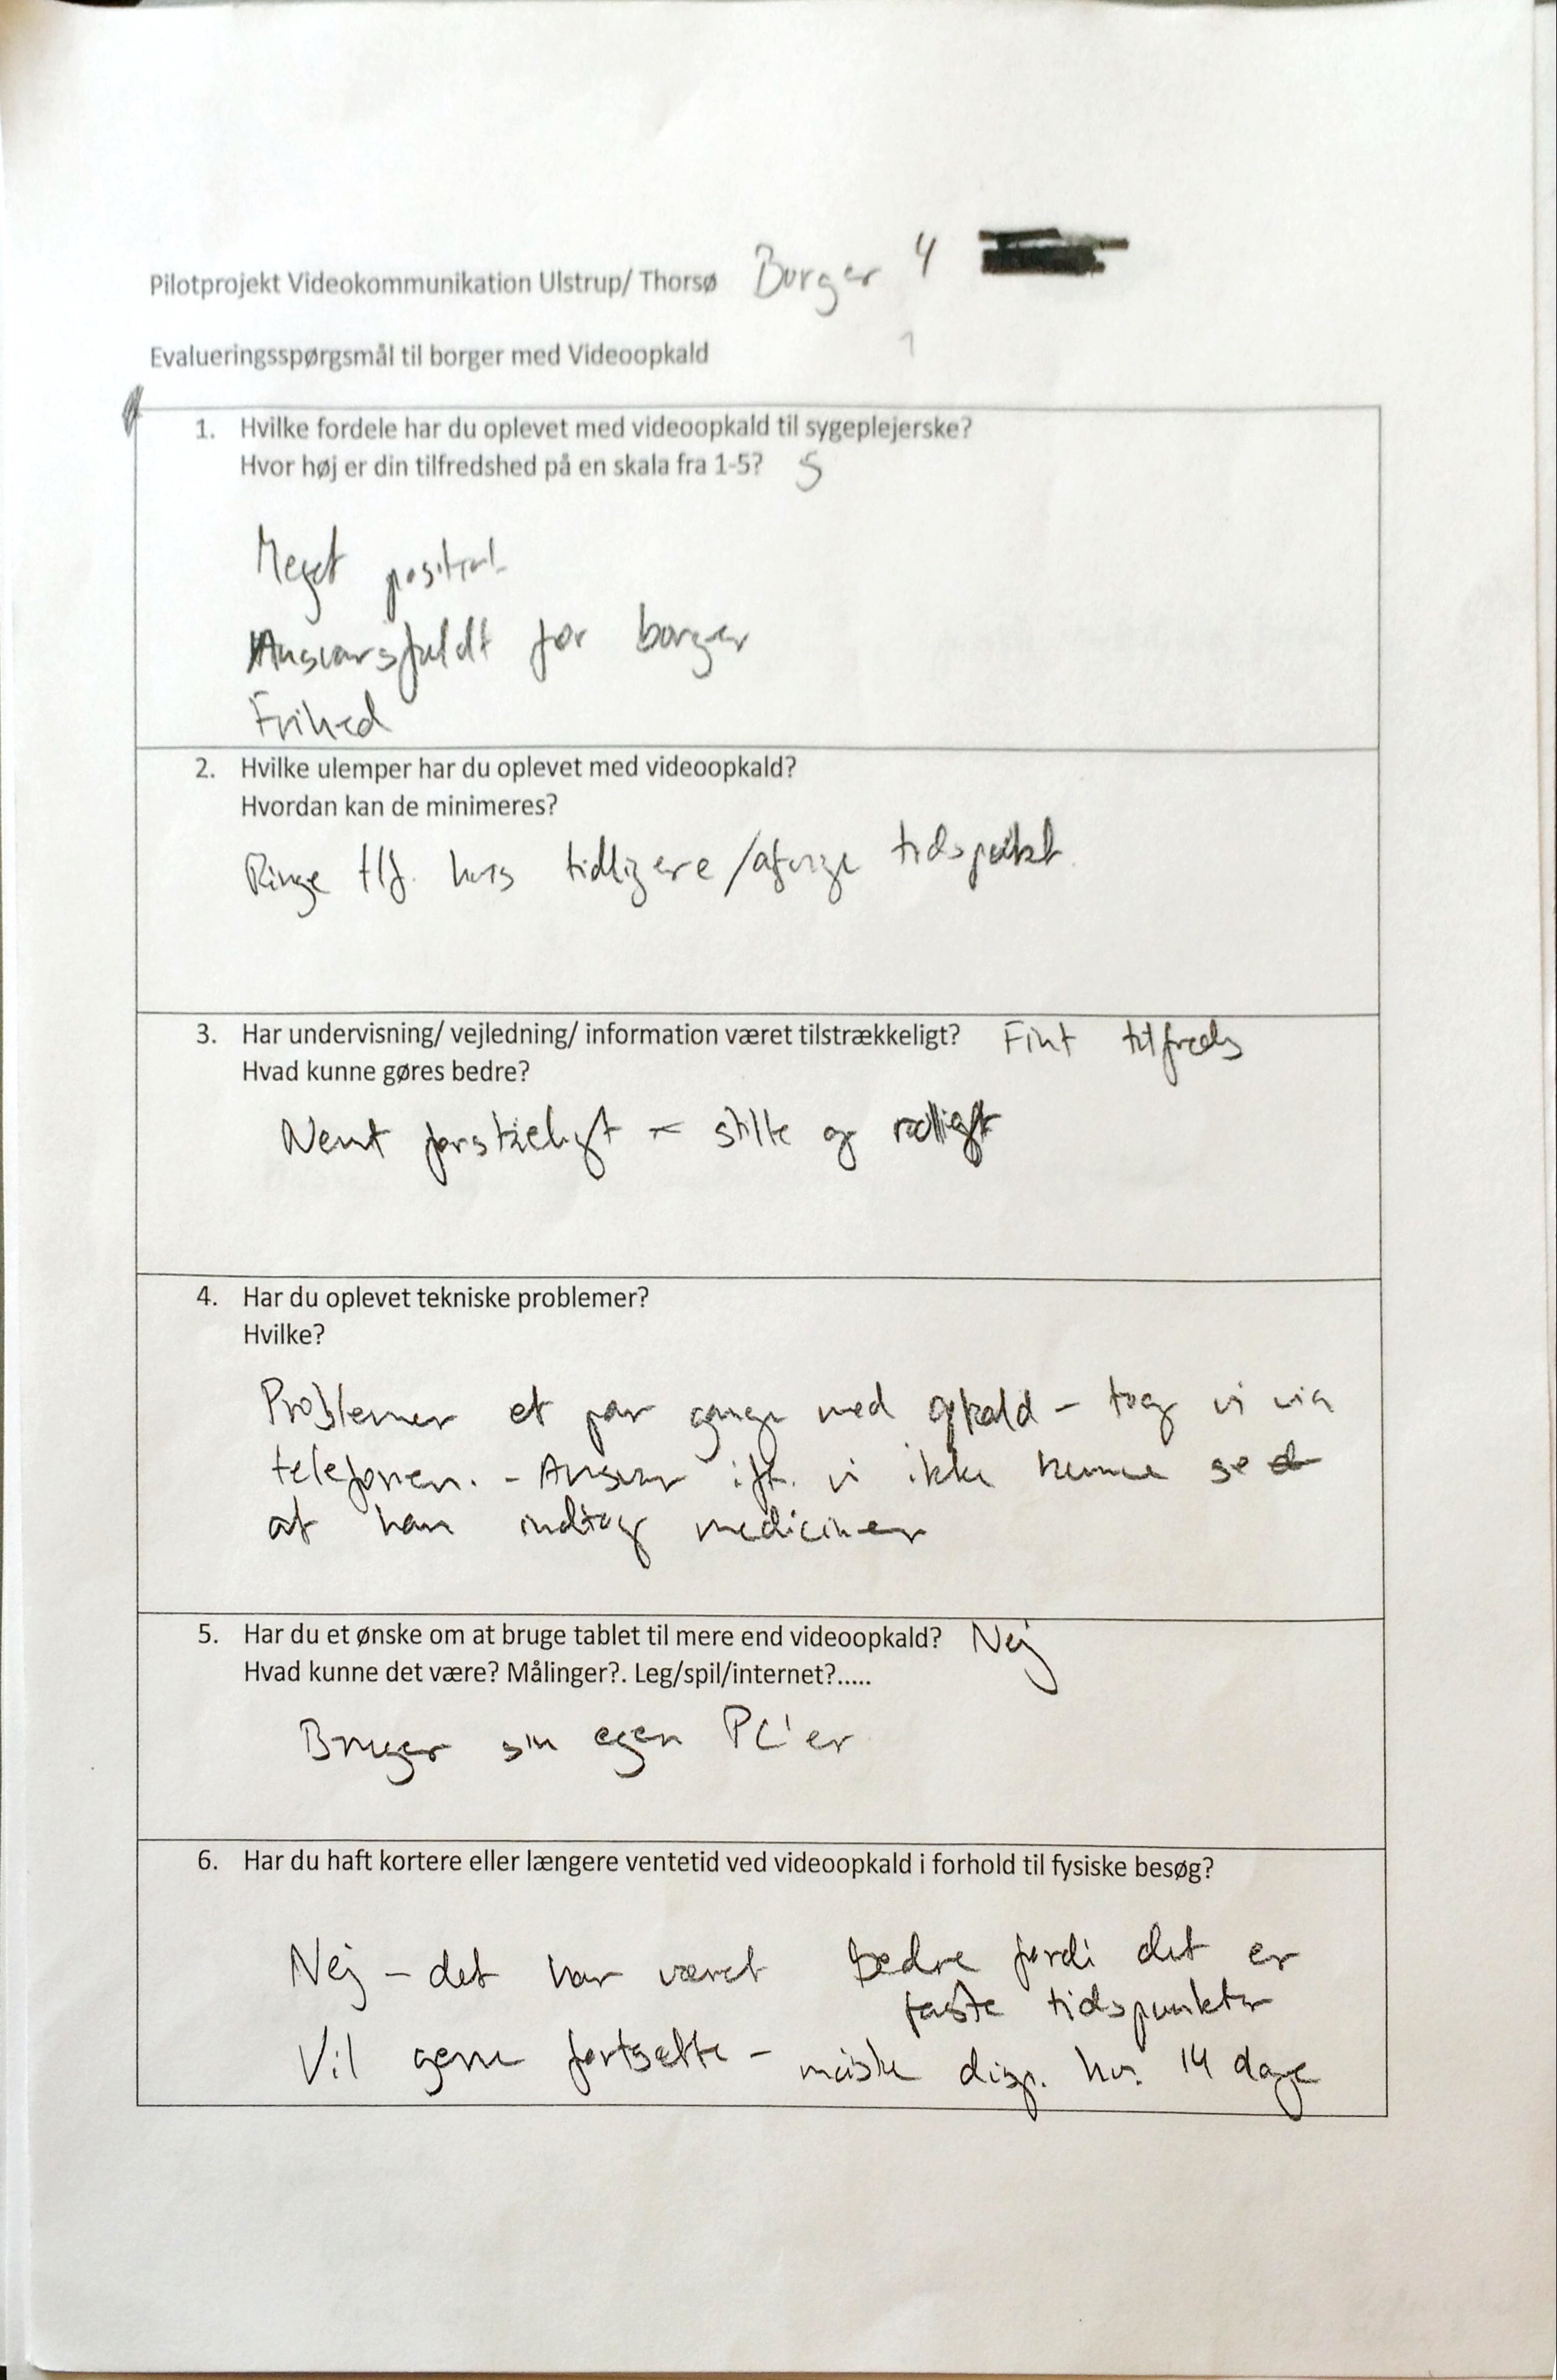 Pilotprojekt Videokommunikation Ulstrup/ Thorsø Borger 4
Evalueringsspørgsmål til borger med Videoopkald 1
1. Hvilke fordele har du oplevet med videoopkald til sygeplejerske?
Hvor høj er din tilfredshed på en skala fra 1-5? 5
Meget positivt
Ansvarsfuldt for borger
Frihed
2. Hvilke ulemper har du oplevet med videoopkald?
Hvordan kan de minimeres?
Ringe tlf. hvis tidligere / tidspunkt
3. Har undervisning/ vejledning/ information været tilstrækkeligt? Fint tilfreds
Hvad kunne gøres bedre?
Nemt forståeligt - stille og roligt
4. Har du oplevet tekniske problemer?
Hvilke?
Problemer et par gange med opkald - tog vi via
telefonen. - Ansvar ift. vi ikke kunne se
at han indtog medicinen
5. Har du et ønske om at bruge tablet til mere end videoopkald? Nej
Hvad kunne det være? Målinger?. Leg/spil/internet?.....
Bruger sin egen PC'er
6. Har du haft kortere eller længere ventetid ved videoopkald i forhold til fysiske besøg?
Nej - det har været bedre fordi det er
faste tidspunkter
Vil gerne fortsætte - måske disp. hv. 14 dage